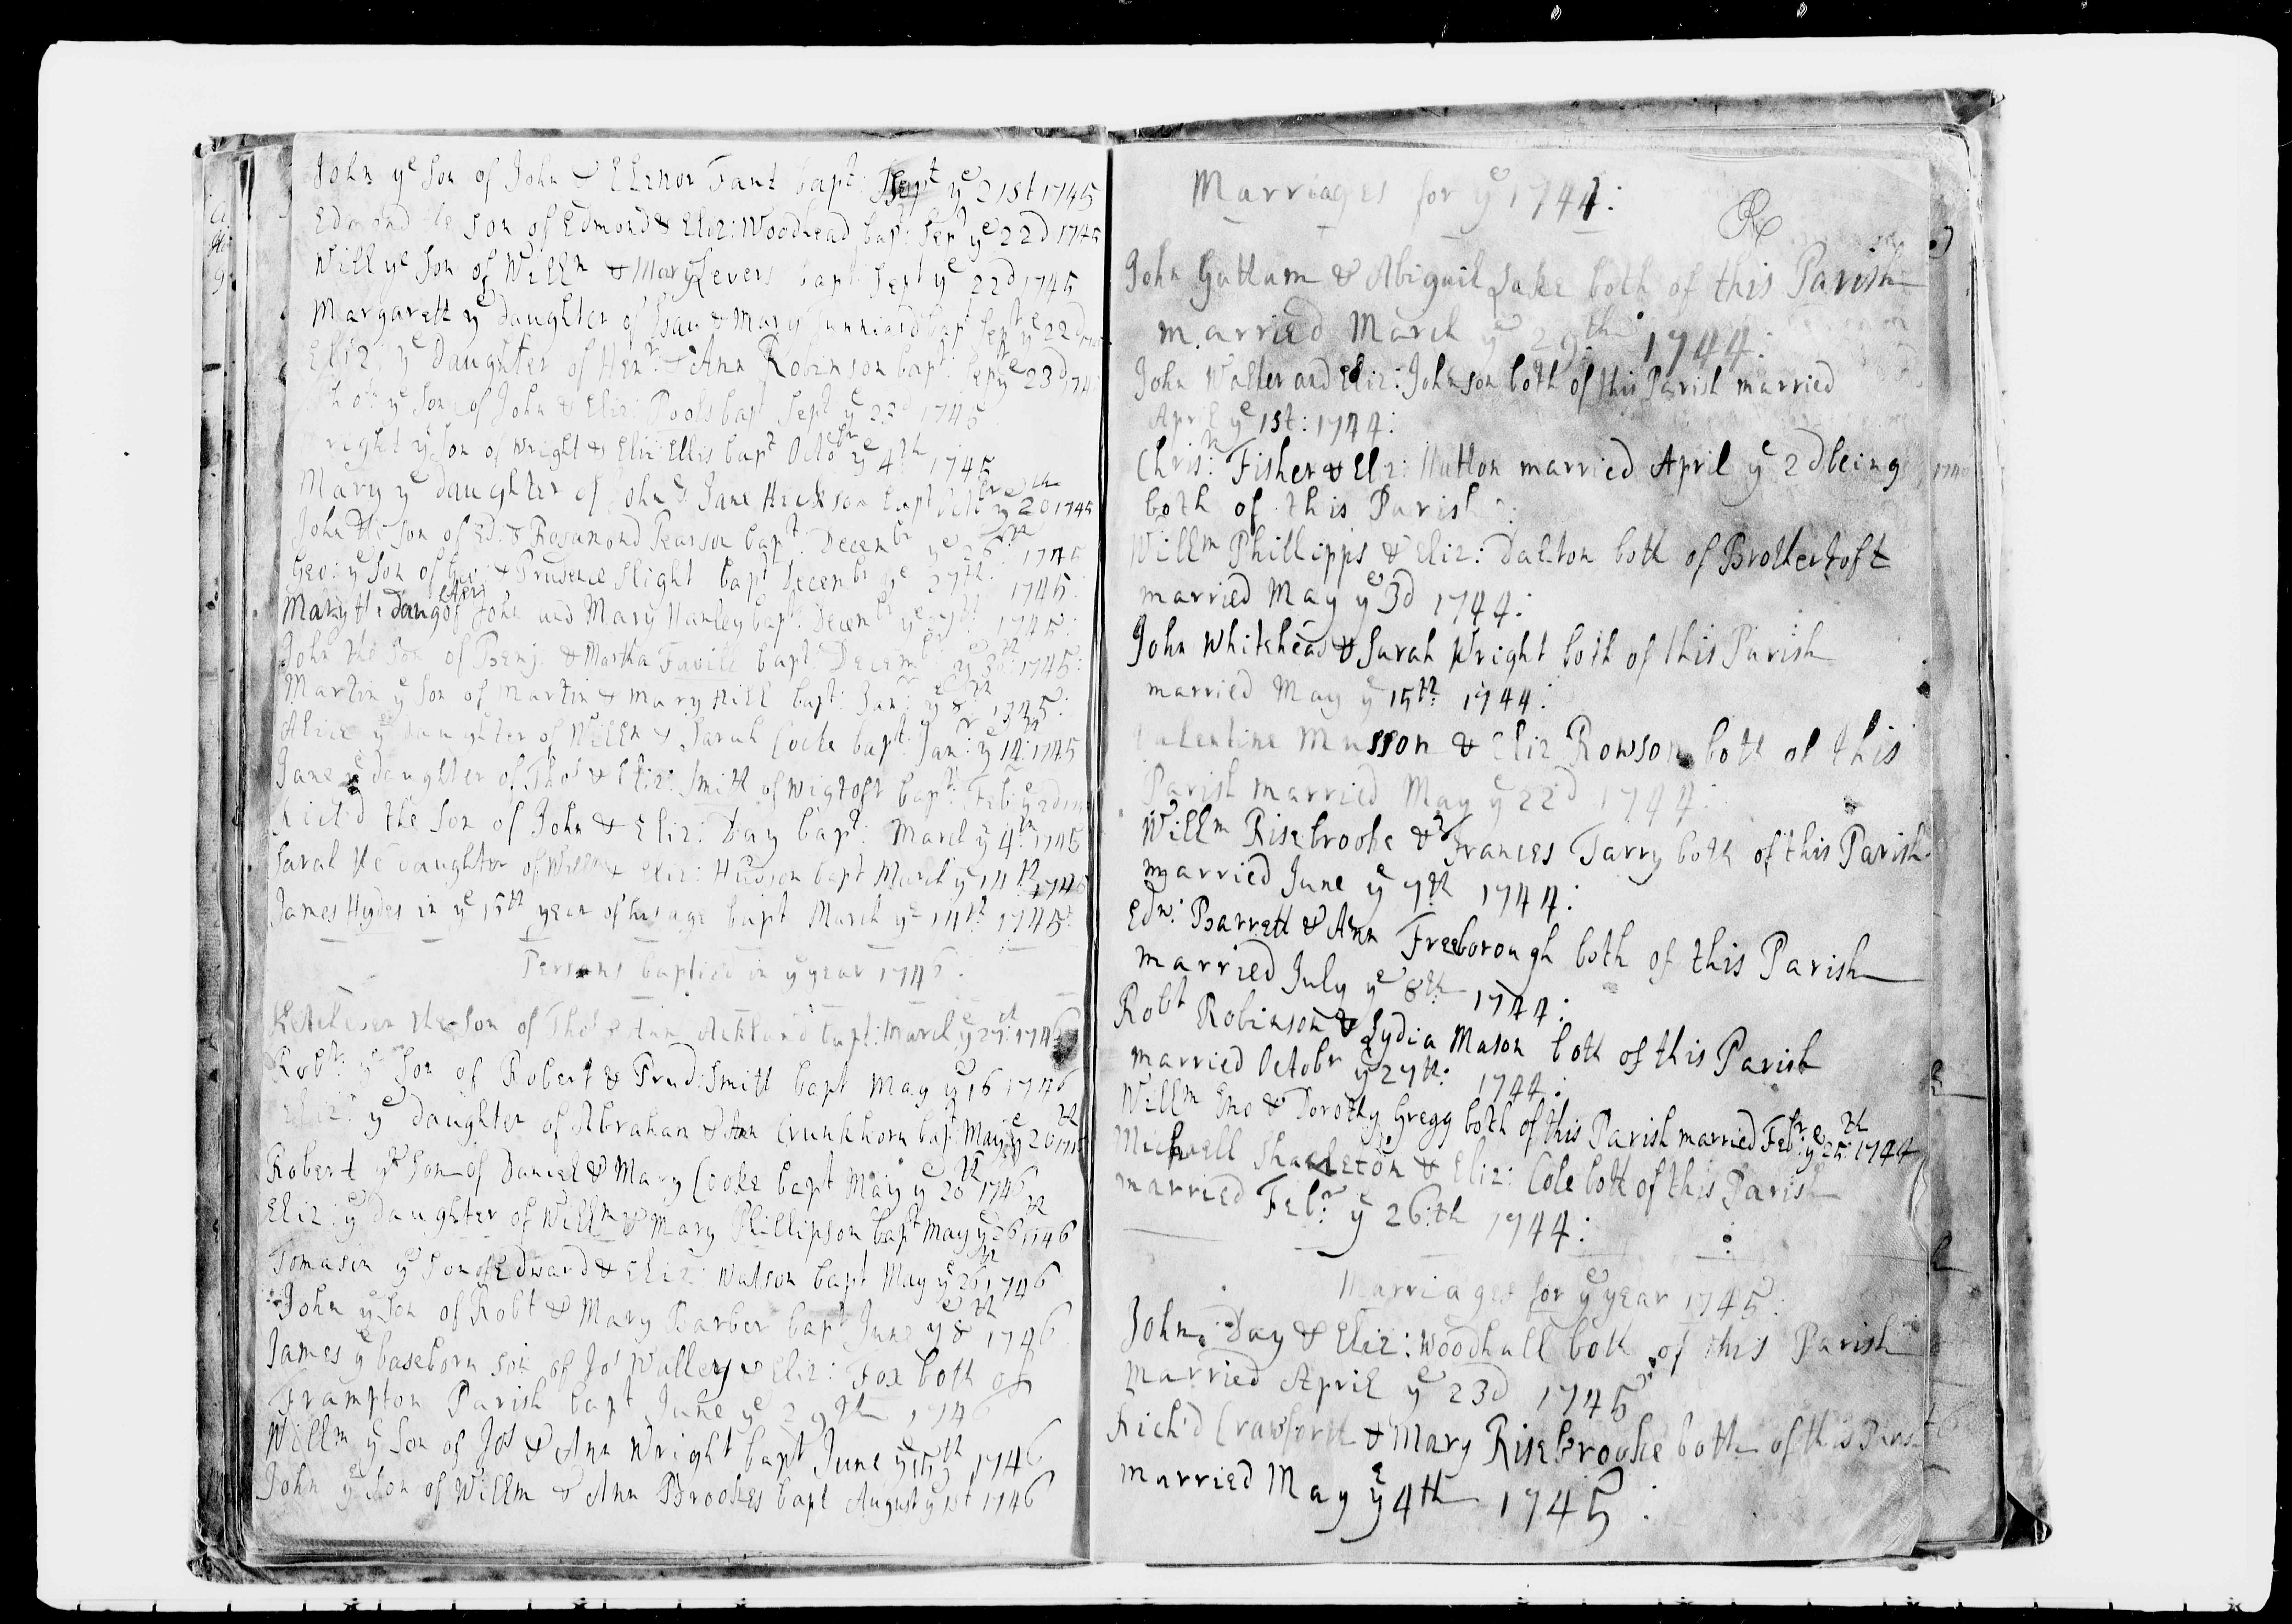 John ye Son of John & Elenor Fant bapt: Sept ye 21st 1745
Edmond the Son of Edmond & Eliz: Woodhead bapt: Sept ye 22d 1745
Will ye Son of Willm & Mary Severs bapt Sept ye 22d 1745
Margarett ye daughter of Esau & Mary bapt Sept ye 22d
Eliz: ye daughter of Henr: & Ann Robinson bapt: Sep ye 23d 174
ye Son of John & Eliz: Pools bapt Sept ye 23d 1745
right ye Son of Wright & Eliz: Ellis bapt Octobr ye 4th 1745
Mary ye daughter of John & Jane Hickson bapt Octbr ye 20th 1745
John the Son of Ed: & Rosamond Pearson bapt: Decembr ye 26th 1745
Geo: ye Son of Geo: & Prudence Slight bapt Decembr ye 27th: 1745:
Mary the daughter of John and Mary Hanley bapt: Decembr ye 1745:
John the Son of Benj: & Martha Favill bapt: Decembr ye 1745:
Martin ye Son of Martin & Mary Hill bapt: Janr: ye 8th 1745:
Alice ye daughter of Willm & Sarah Cocke bapt: Janr: ye 14th: 1745
Jane ye daughter of Thos & Eliz: Smith of Wigtoft bapt: Feb: ye 2d
Richd the Son of John & Eliz: Day bapt: March ye 4th: 1745
Sarah the daughter of Willm & Eliz: Hudson bapt March ye 11th 1745
James Hydes in ye 15th year of his age bapt March ye 14th 1745:
Persons baptized in ye year 1746:
the Son of Thos & Ann Ackland bapt: March ye 27th: 1746
Robt: ye Son of Robert & Prud: Smith bapt May ye 16 1746
Eliz: ye daughter of Abraham & Ann Crunkhorn bapt: May ye 20th
Robert ye Son of Daniel & Mary Cooke bapt May ye 20th 1746
Eliz: ye daughter of Willm & Mary Phillipson bapt May ye 26th 1746
Tomasin ye Son of Edward & Eliz: Watson bapt May ye 26th 1746
John ye Son of Robt & Mary Barber bapt June ye 8th 1746
James ye baseborn son of Jos Walley & Eliz: Fox both of
Frampton Parish bapt June ye 29th 1746
Willm ye Son of Jos & Ann Wright bapt June ye 15th 1746
John ye Son of Willm & Ann Brookes bapt August ye 1st 1746
Marriages for ye 1744:
John Guttum & Abigail Lake both of this Parish
married March ye 29th 1744:
John Walter and Eliz: Johnson both of this Parish married
April ye 1st: 1744:
Chrisr: Fisher & Eliz: Hutton married April ye 2d being
both of this Parish:
Willm Phillipps & Eliz: Dalton both of Brothertoft
married May ye 3d 1744:
John Whitehead & Sarah Wright both of this Parish
married May ye 15th 1744:
Valentine Musson & Eliz Rowson both of this
Parish married May ye 22d 1744:
Willm Risebrooke & Frances Tarry both of this Parish
married June ye 7th 1744:
Edw: Barrett & Ann Freeborough both of this Parish
married July ye 8th 1744:
Robt Robinson & Lydia Mason both of this Parish
married Octobr ye 27th: 1744:
Willm Eno & Dorothy Gregg both of this Parish married Febr: ye 25th: 1744
Michaell Shackleton & Eliz: Cole both of this Parish
married Febr: ye 26:th 1744:
Marriages for ye year 1745:
John Day & Eliz: Woodhall both of this Parish
married April ye 23d 1745
Richd Crawforth & Mary Risebrooke both of this Paris
married May ye 4th 1745: